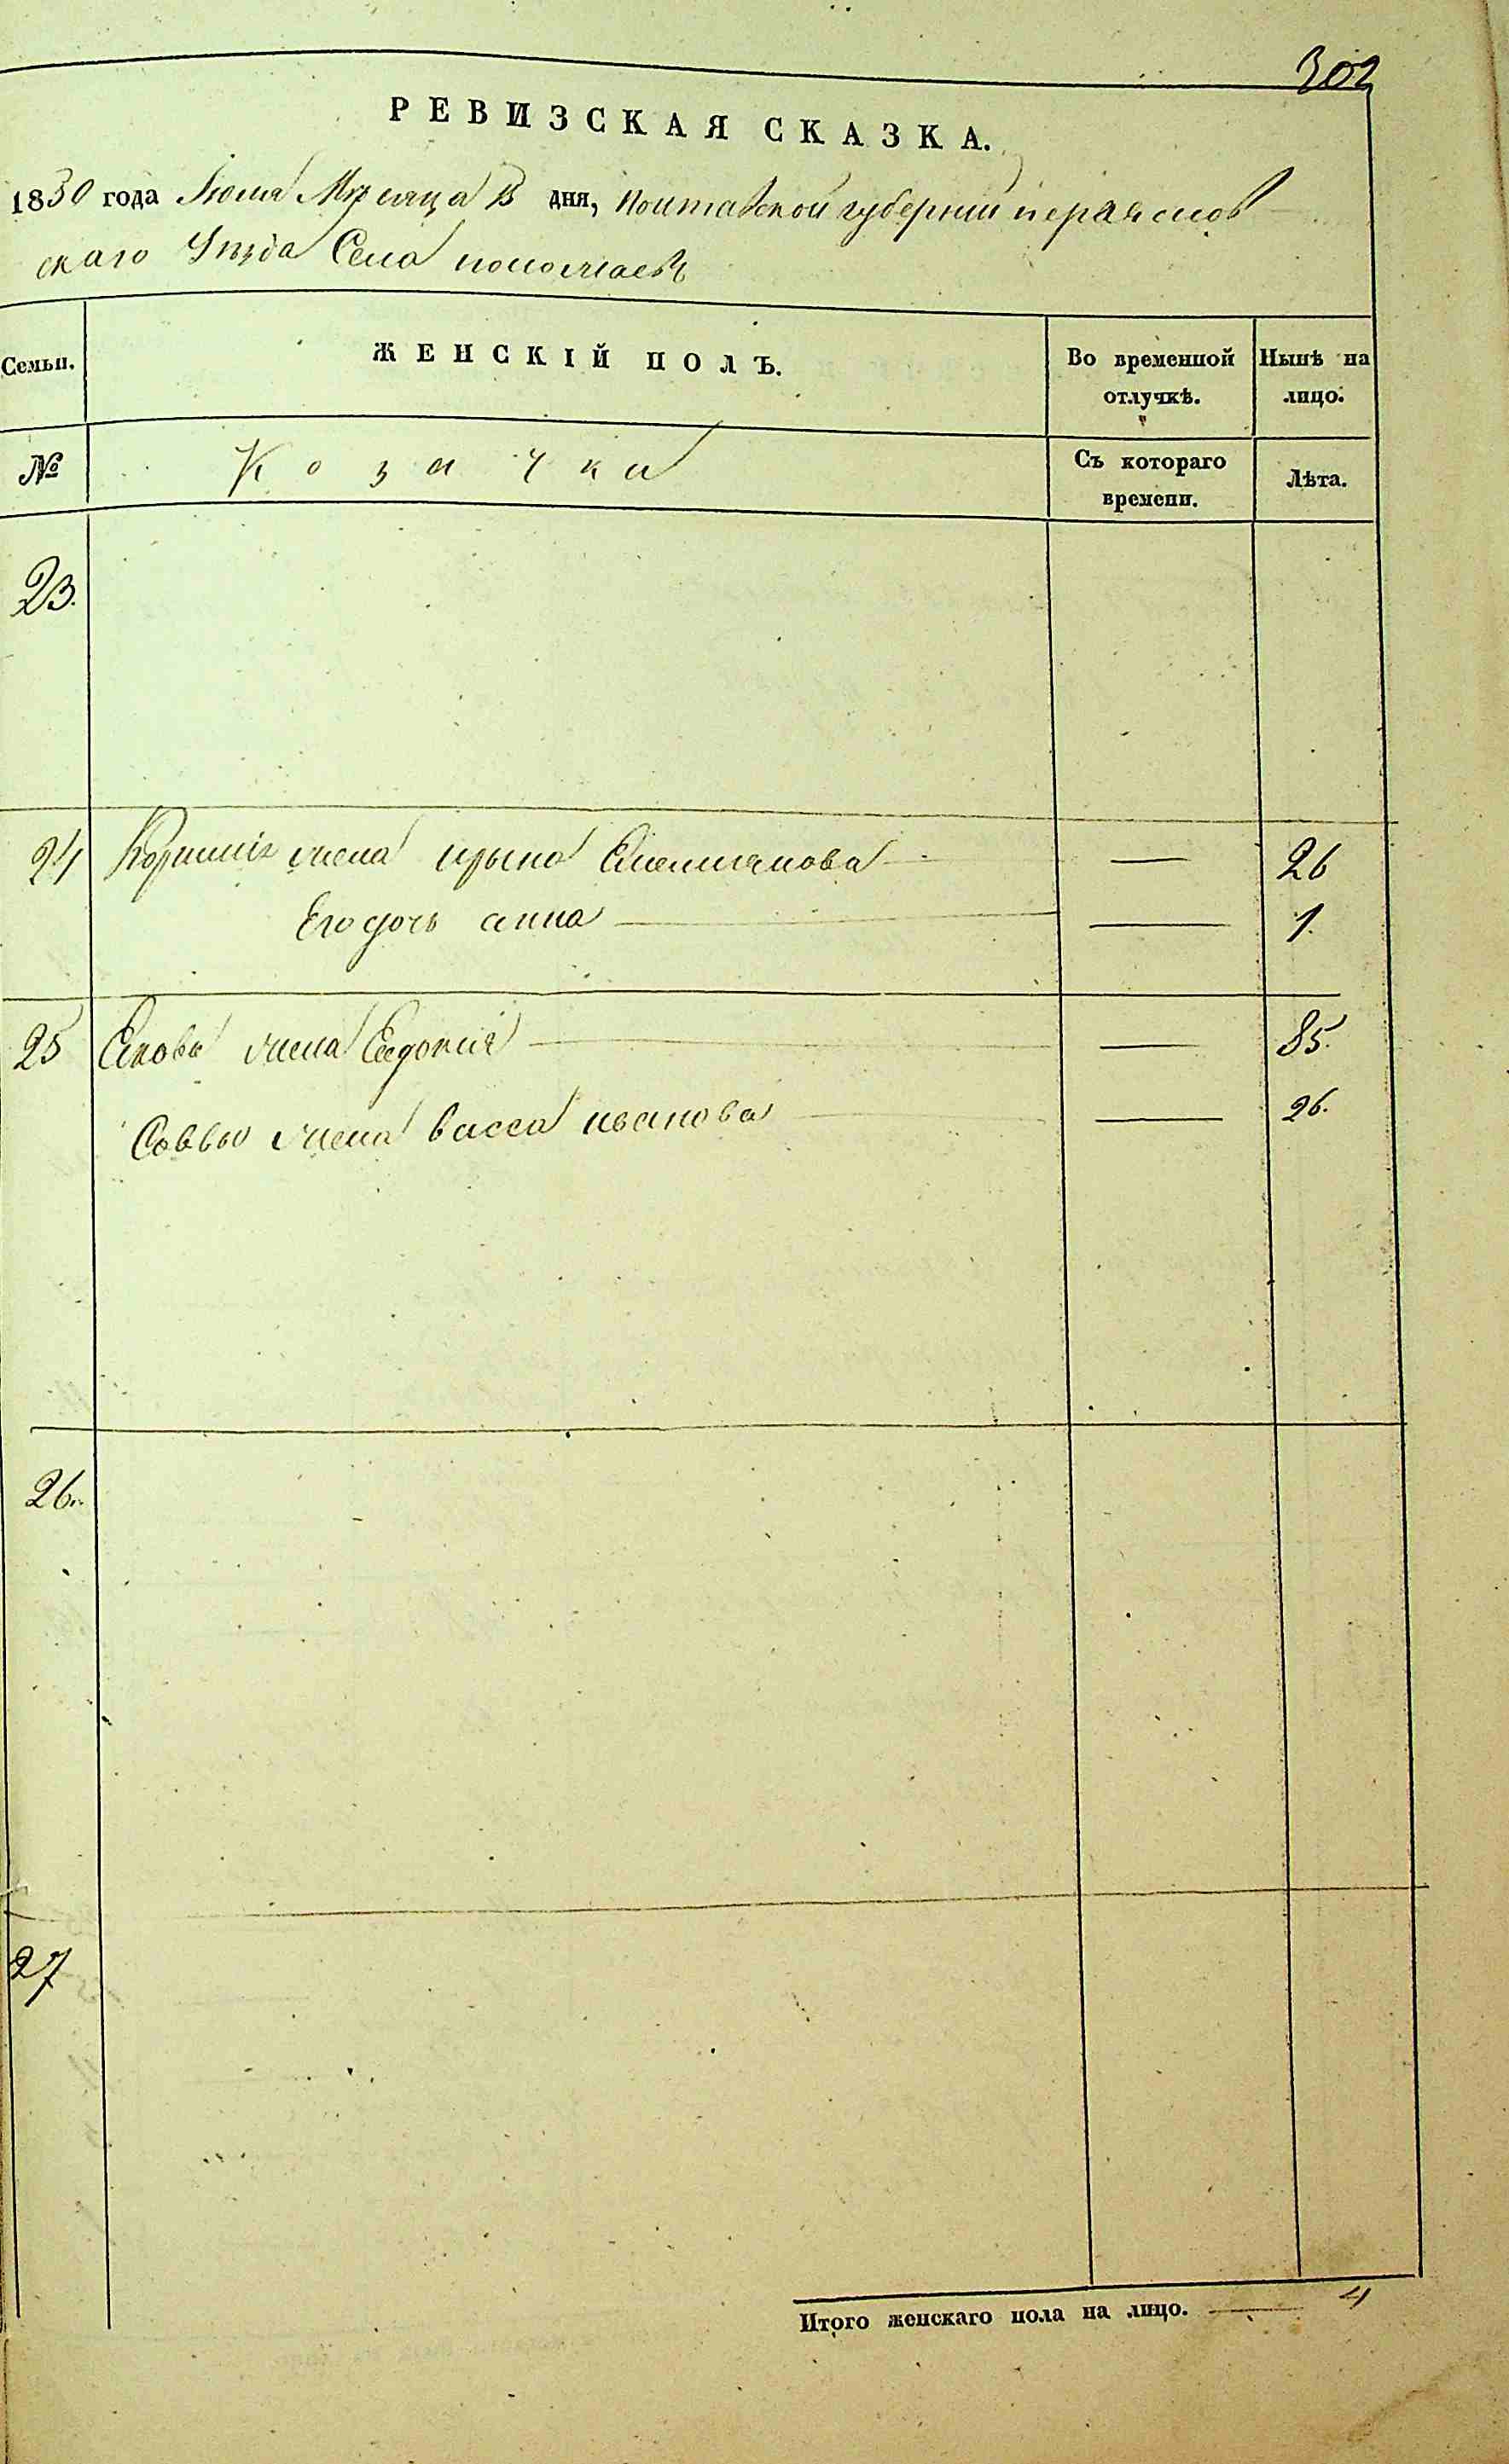 302
РЕВИЗСКАЯ СКАЗКА.
1850 года Июля Мѣсяца 13 дня, полтавской губерніи переяслов
скаго Уѣзда Села помоклаевъ
Семьи.
ЖЕНСКІЙ ПОЛЪ.
Во временной отлучкѣ.
Ныпѣ на лицо.
№
Козачки
Съ котораго времени.
Лѣта.
23.
24 Корнилія жена ирына Емелиянова — 26
Его дочь анна — 1.
25 Екова жена Евдокия — 85.
Саввы жена васса иванова — 26.
26.
27
Итого женскаго пола на лицо. — 4